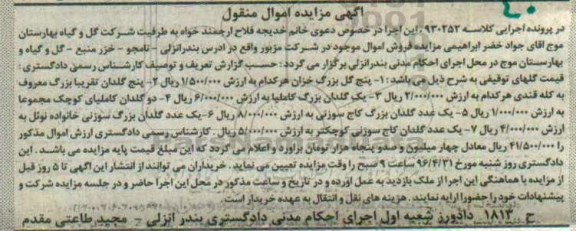 آگهی مزایده اموال منقول
در پرونده اجرایی کلاسه ۹۳۰۲۵۲، این اجرا در خصوص دعوی خانم خدیجه فلاح ارجمند خواه به طرفیت شرکت گل و گیاه بهارستان
موج آقای جواد خضر ابراهیمی مزایده فروش اموال موجود در شرکت مزبور واقع در ادرس بندرانزلی - تامجو - خزر منبع - گل و گیاه و
بهارستان موج در محل اجرای احکام مدنی بندرانزلی برگزار می گردد: حسب گزارش تعریف و توصیف کارشناس رسمی دادگستری،
قیمت گلهای توقیفی به شرح ذیل می باشد: ۱- پنج گل بزرگ خزان هر کدام به ارزش ۱/۵۰۰/۰۰۰ ریال ۲- پنج گلدان تقریبا بزرگ معروف
به کله قندی هر کدام به ارزش ۲/۰۰۰/۰۰۰ ریال ۳- یک گلدان بزرگ کاملیا به ارزش ۶/۰۰۰/۰۰۰ ریال ۴- دو گلدان کاملیای کوچک مجموعا
به ارزش ۱/۰۰۰/۰۰۰ ریال ۵- یک عدد گلدان بزرگ کاج سوزنی به ارزش ۸/۰۰۰/۰۰۰ ریال ۶- یک عدد گلدان بزرگ سوزنی خانواده نوئل به
ارزش ۴/۰۰۰/۰۰۰ ریال ۷- یک عدد گلدان کاج سوزنی کوچکتر به ارزش ۵/۰۰۰/۰۰۰ ریال. کارشناس رسمی دادگستری ارزش اموال مذکور
را ۴۱/۵۰۰/۰۰۰ ریال معادل چهار میلیون و صد و پنجاه هزار تومان برآورد و اعلام می گردد که این مبلغ قیمت پایه مزایده می باشد. این
دادگستری روز شنبه مورخ ۹۶/۴/۳۱ ساعت ۹ صبح را وقت مزایده تعیین می نماید. خریداران می توانند از انتشار این آگهی تا ۵ روز قبل
از مزایده با هماهنگی این اجرا از ملک بازدید به عمل آورده و در تاریخ و ساعت مذکور در محل این اجرا حاضر و در جلسه مزایده شرکت و
پیشنهادات خود را حضورا ارایه نمایند. هزینه های نقل و انتقال به عهده خریدار است.
ح ۱۸۱۳ دادورز شعبه اول اجرای احکام مدنی دادگستری بندر انزلی - مجید طاعتی مقدم